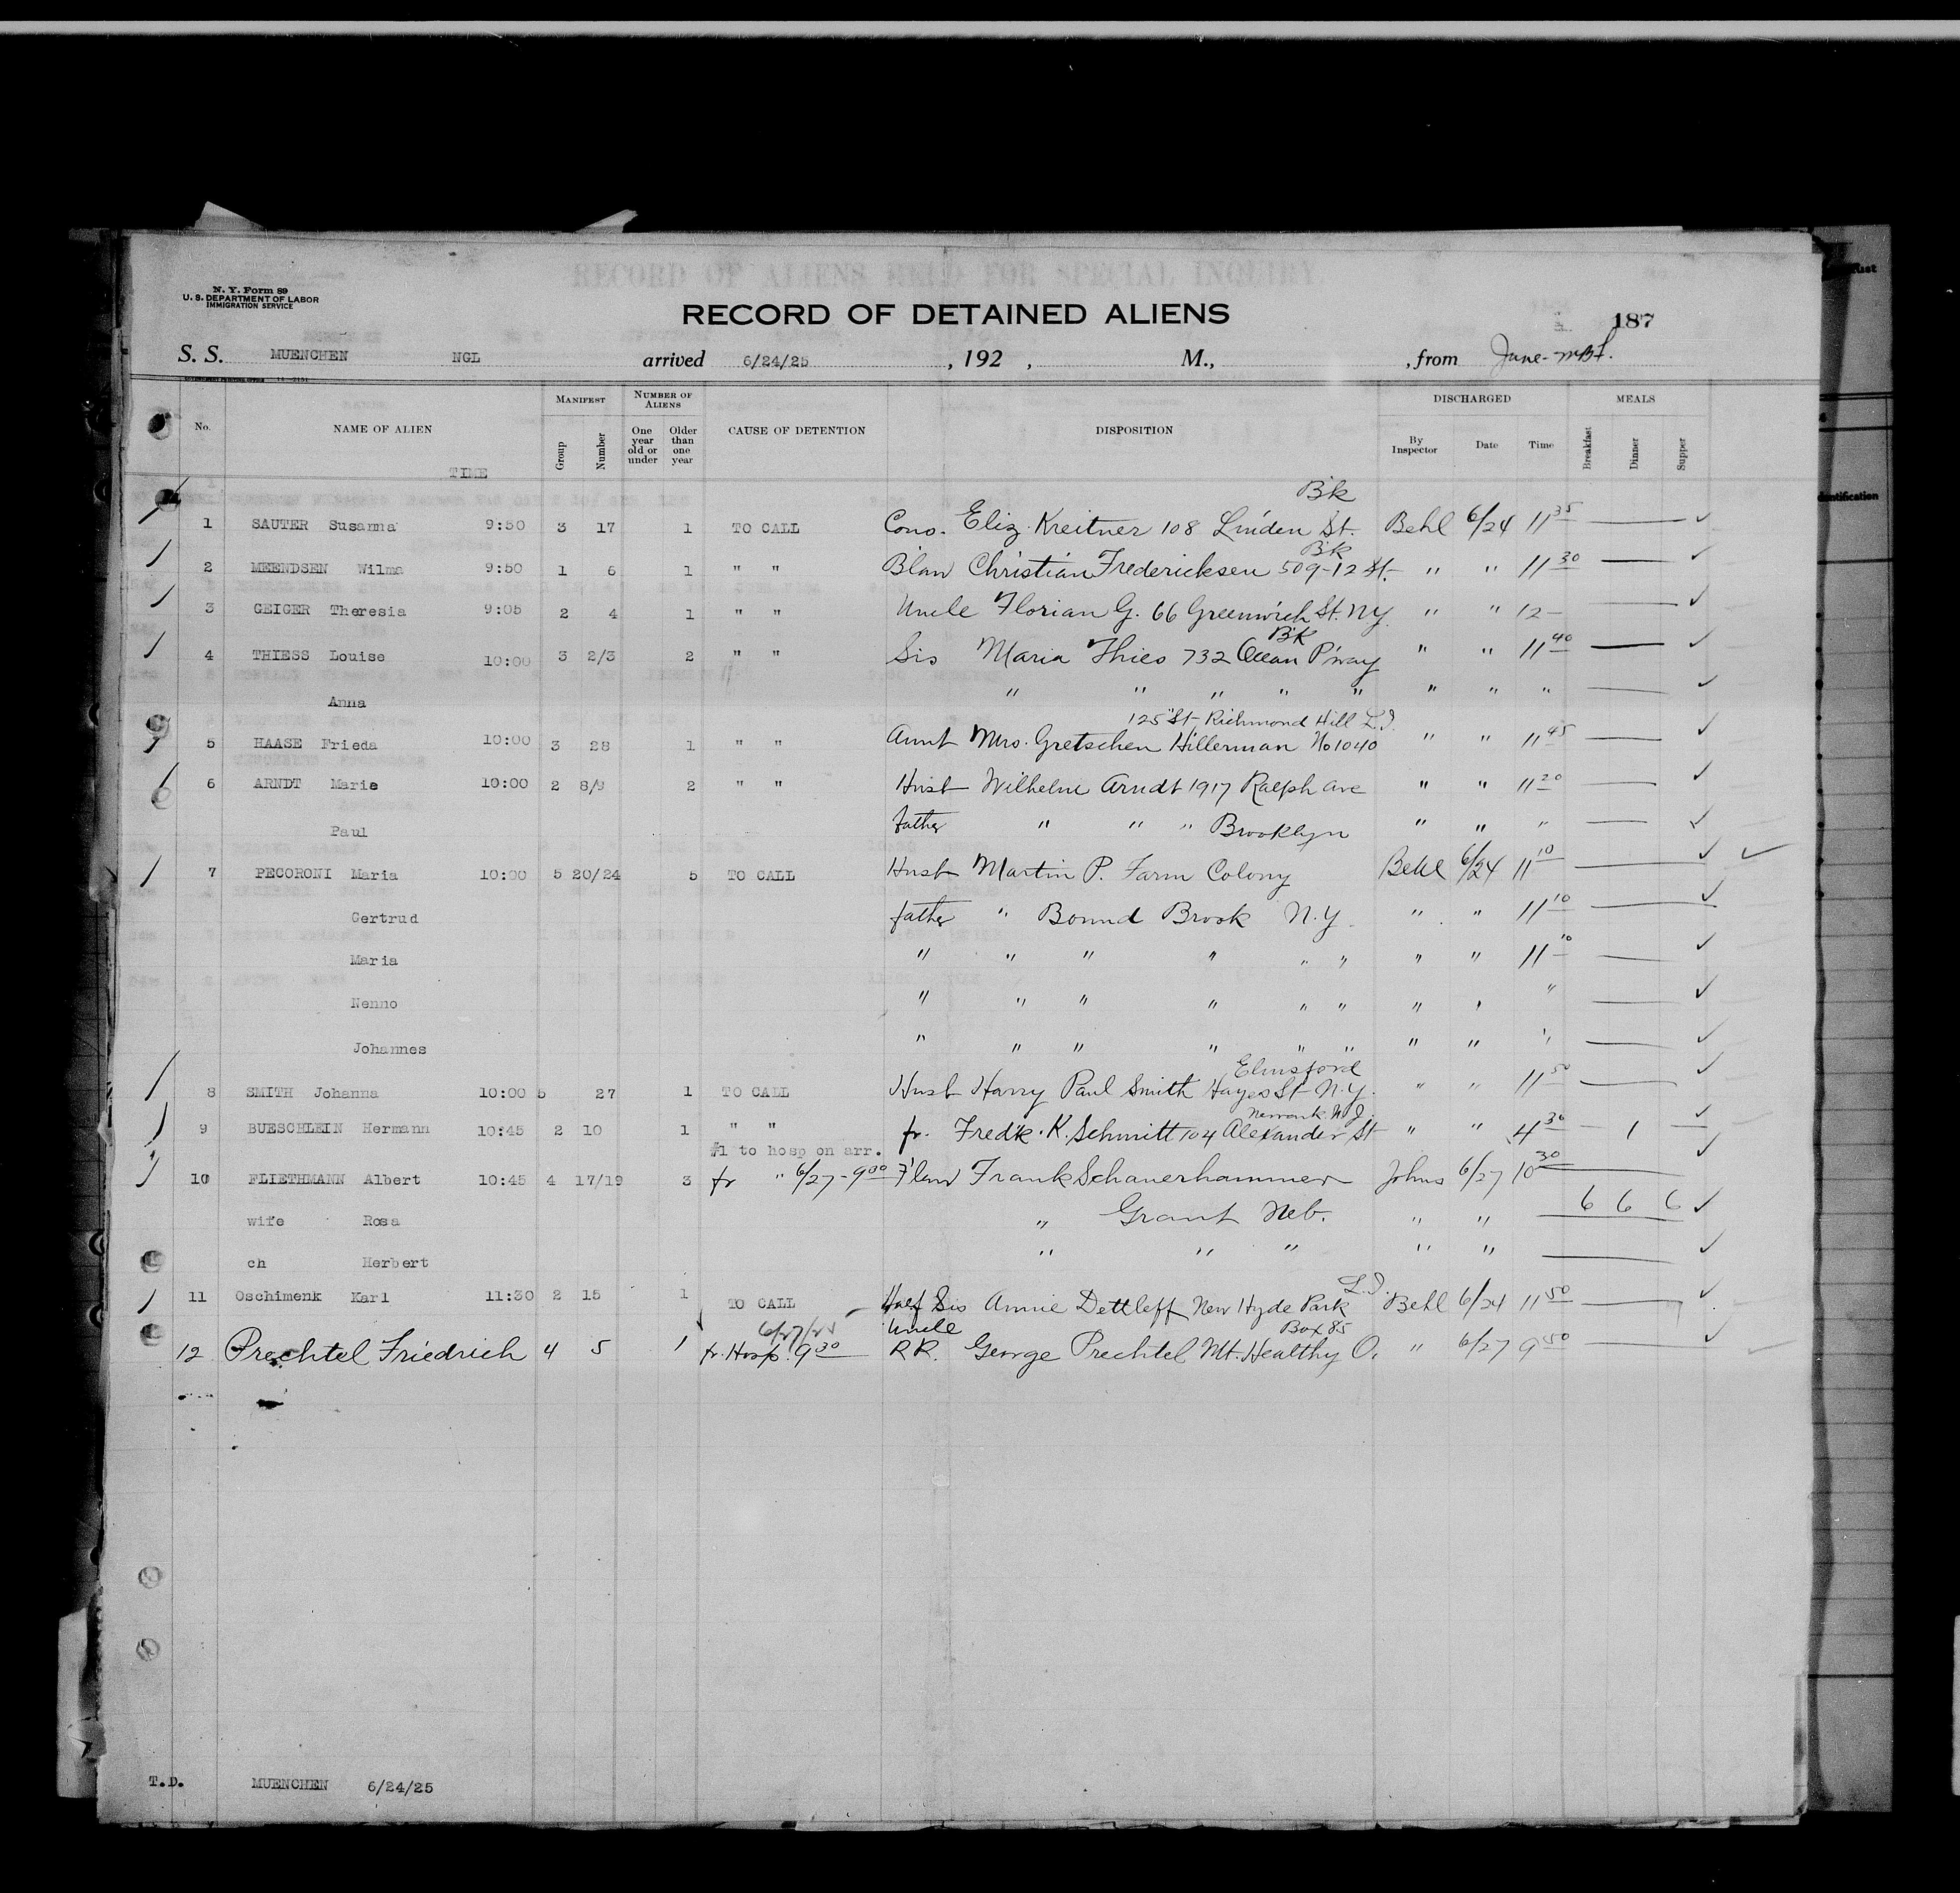 N. Y. Form 89
U. S. DEPARTMENT OF LABOR
IMMIGRATION SERVICE
RECORD OF ALIENS HELD FOR SPECIAL INQUIRY
RECORD OF DETAINED ALIENS
187
S. S. MUENCHEN NGL arrived 6/24/25, 192 , M., , from June-
No. NAME OF ALIEN TIME MANIFEST Group Number NUMBER OF ALIENS One year old or under Older than one year CAUSE OF DETENTION DISPOSITION DISCHARGED By Inspector Date Time MEALS Breakfast Dinner Supper
B'k
1 SAUTER Susanna 9:50 3 17 1 TO CALL Cous. Eliz. Kreitner 108 Linden St. Behl 6/24 11 35
B'k
2 MEENDSEN Wilma 9:50 1 6 1 " " Blaw Christian Fredericksen 509-12 St. " " 11 30
3 GEIGER Theresia 9:05 2 4 1 " " Uncle Florian G. 66 Greenwich St. NY. " " 12 -
B'K
4 THIESS Louise 10:00 3 2/3 2 " " Sis Maria Thies 732 Ocean P'way " " 11 40
Anna " " " " " " " "
125" St- Richmond Hill L.I.
5 HAASE Frieda 10:00 3 28 1 " " Aunt Mrs. Gretschen Hillerman No 1040 " " 11 45
6 ARNDT Marie 10:00 2 8/9 2 " " Husb Wilhelm Arndt 1917 Ralph Ave " " 11 20
Paul father " " " Brooklyn " " "
7 PECORONI Maria 10:00 5 20/24 5 TO CALL Husb Martin P. Farm Colony Behl 6/24 11 10
Gertrud father " Bound Brook N.Y. " " 11 10
Maria " " " " " " " " 11 10
Nenno " " " " " " " " "
Johannes " " " " " " " " "
Elmsford
8 SMITH Johanna 10:00 5 27 1 TO CALL Husb Harry Paul Smith Hayes St- N.Y. " " 11 50
Newark. N.J.
9 BUESCHLEIN Hermann 10:45 2 10 1 " " fr. Fredk. K. Schmitt 104 Alexander St " " 4 30 - 1 -
#1 to hosp on arr.
10 FLIETHMANN Albert 10:45 4 17/19 3 fr " 6/27-9 00 F'law Frank Schauerhammer Johns 6/27 10 30
wife Rosa " Grant Neb. " " 6 6 6
ch Herbert " " " " "
L.I.
11 Oschimenk Karl 11:30 2 15 1 TO CALL Half Sis Annie Dettleff New Hyde Park Behl 6/24 11 50
6/27/25 Uncle Box 85
12 Prechtel Friedrich 4 5 1 fr. Hosp. 9 30 RR. George Prechtel Mt. Healthy O. " 6/27 9 50
T.D. MUENCHEN 6/24/25